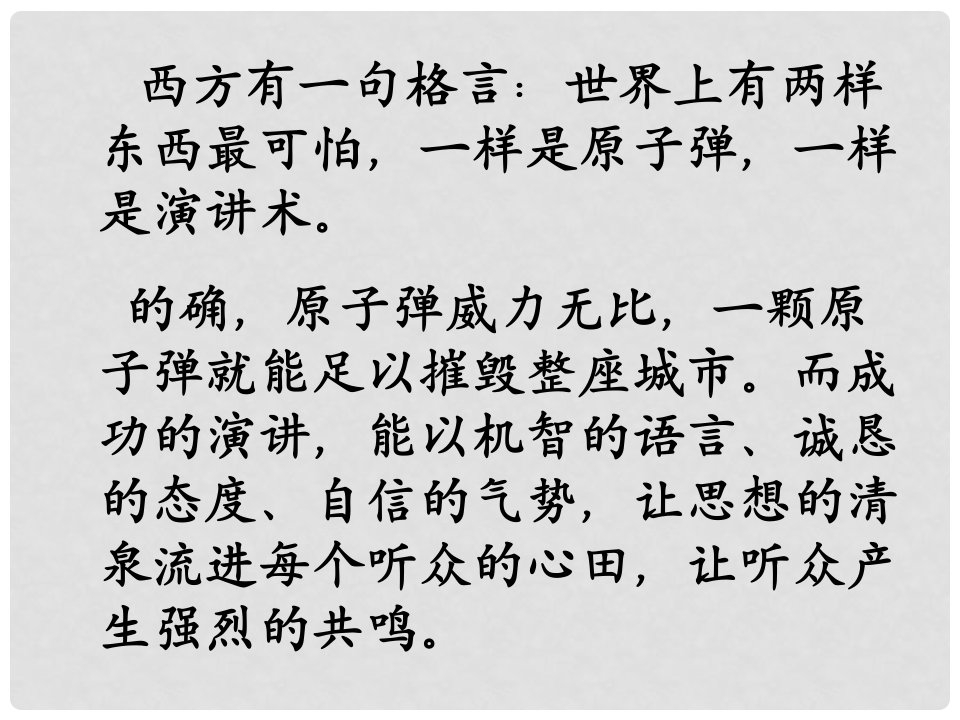 西方有一句格言：世界上有两样
东西最可怕，一样是原子弹，一样
是演讲术。
的确，原子弹威力无比，一颗原
子弹就能足以摧毁整座城市。而成
功的演讲，能以机智的语言、诚恳
的态度、自信的气势，让思想的清
泉流进每个听众的心田，让听众产
生强烈的共鸣。